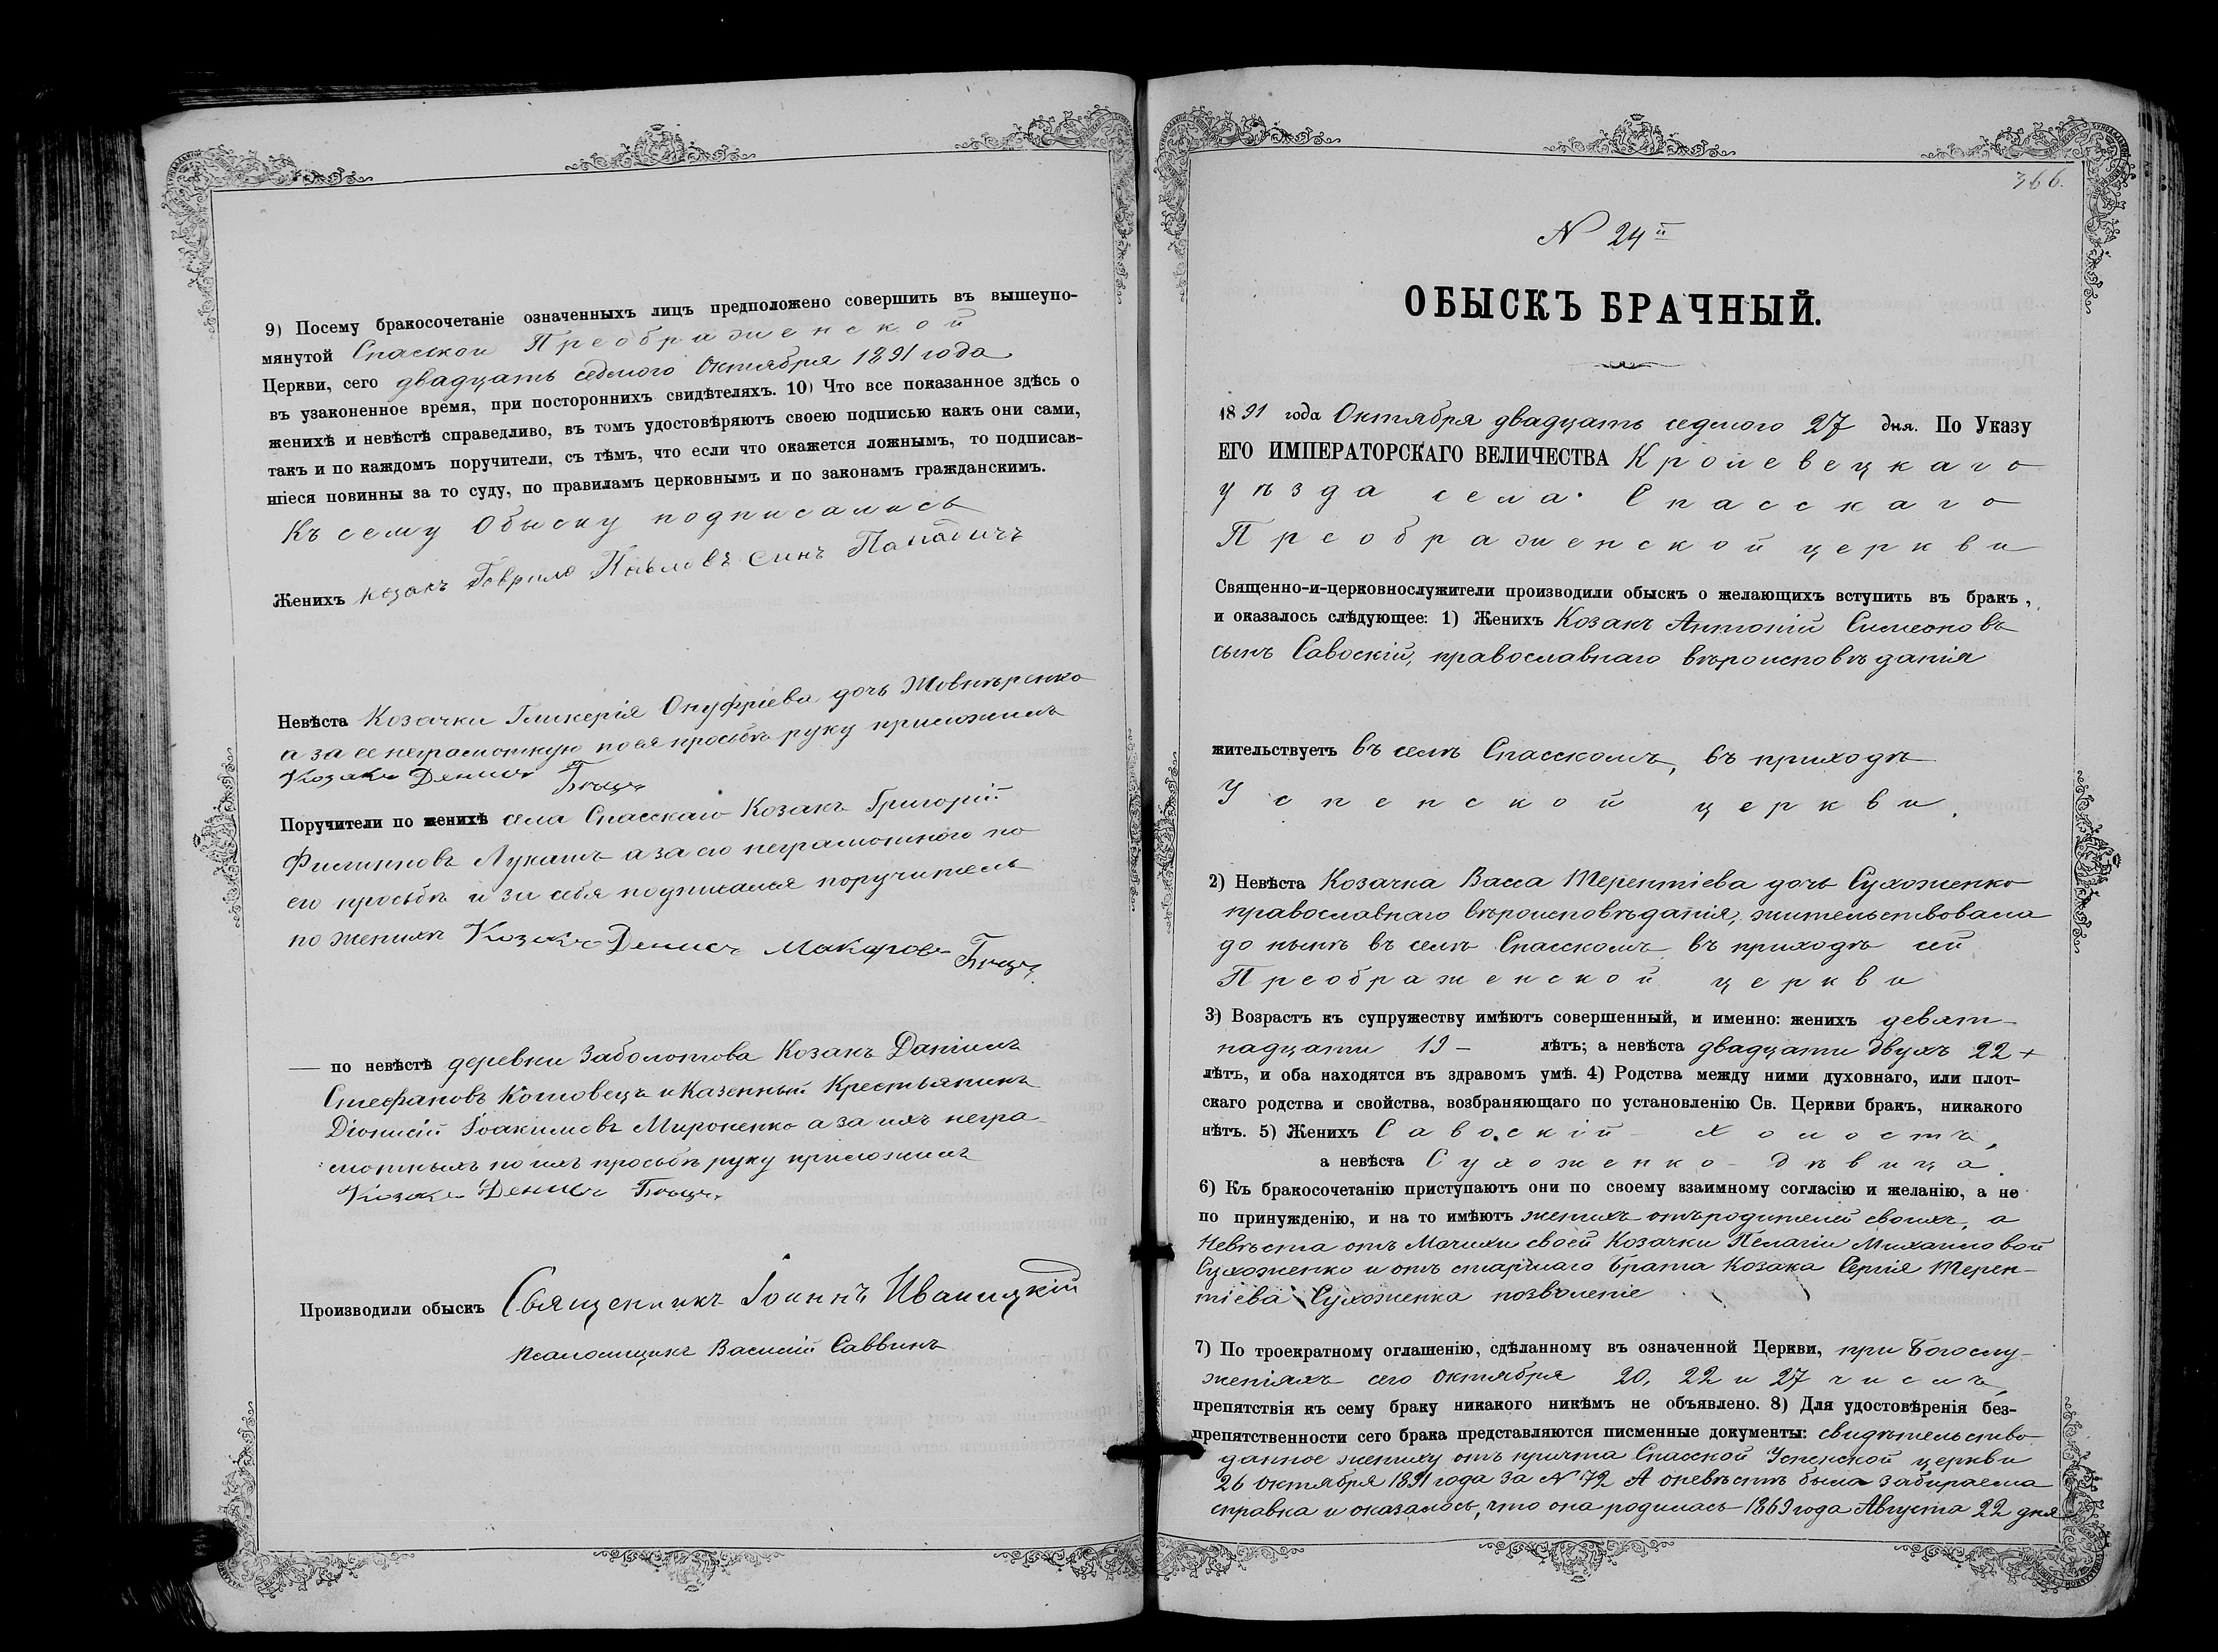 9) Посему бракосочетаніе означенныхъ лицъ предположено совершить въ вышеупо-
мянутой Спасской Преображенской
Церкви, сего двадцать седьмого Октября 1891 года
въ узаконенное время, при постороннихъ свидѣтеляхъ. 10) Что все показанное здѣсь о
женихѣ и невѣстѣ справедливо, въ томъ удостовѣряютъ своею подписью какъ они сами,
такъ и по каждомъ поручители, съ тѣмъ, что если что окажется ложнымъ, то подписав-
шіеся повинны за то суду, по правиламъ церковнымъ и по законамъ гражданскимъ.
Къ сему Обыску подписались
Женихъ козакъ Гаврило Павловъ синъ
Невѣста Козачки Гликерія Онуфріева дочь Жовнѣренко
а за ее неграмотную по ея просьбѣ руку приложилъ
Козакъ Денисъ
Поручители по женихѣ села Спасскаго Козакъ Григорій
Филиповъ Лукашъ а за его неграмотного по
его просьбѣ и за себя подписался поручитель
по женихѣ Козакъ Денисъ Макаровъ
— по невѣстѣ деревни Заболотова Козакъ Даніилъ
Стефановъ и Казенный Крестьянинъ
Діонисій Іоакимовъ Мироненко а за ихъ негра-
мотныхъ по ихъ просьбѣ руку приложилъ
Козакъ Денисъ
Производили обыскъ Священникъ Іоаннъ Иваницкій
псаломщикъ Василій Саввинъ
366.
N 24й
ОБЫСКЪ БРАЧНЫЙ.
1891 года Октября двадцать седмого 27 дня. По Указу
ЕГО ИМПЕРАТОРСКАГО ВЕЛИЧЕСТВА Кролевецкаго
уѣзда села Спасскаго
Преображенской церкви
Священно-и-церковнослужители производили обыскъ о желающихъ вступить въ бракъ,
и оказалось слѣдующее: 1) Женихъ Козакъ Антоній Симеоновъ
сынъ Савоскій, православнаго вѣроисповѣданія
жительствуетъ въ селѣ Спасскомъ, въ приходѣ
Успенской церкви.
2) Невѣста Козачка Васса Терентіева дочь Сухоженко
православнаго вѣроисповѣданія, жительствовала
до нынѣ въ селѣ Спасскомъ въ приходѣ сей
Преображенской церкви
3) Возрастъ къ супружеству имѣютъ совершенный, и именно: женихъ девят-
надцати 19 – лѣтъ; а невѣста двадцати двухъ 22 +
лѣтъ, и оба находятся въ здравомъ умѣ. 4) Родства между ними духовнаго, или плот-
скаго родства и свойства, возбраняющаго по установленію Св. Церкви бракъ, никакого
нѣтъ. 5) Женихъ Савоскій – холостъ,
а невѣста Сухоженко – дѣвица.
6) Къ бракосочетанію приступаютъ они по своему взаимному согласію и желанію, а не
по принужденію, и на то имѣютъ женихъ отъ родителей своихъ, а
Невѣста отъ Мачихи своей Козачки Пелагіи Михаиловой
Сухоженко и отъ старшаго брата Козака Сергія Терен-
тіева Сухоженка позволеніе
7) По троекратному оглашенію, сдѣланному въ означенной Церкви, при Богослу-
женіяхъ сего октября 20, 22 и 27 числъ,
препятствія къ сему браку никакого никѣмъ не объявлено. 8) Для удостовѣренія без-
препятственности сего брака представляются писменные документы: свидѣтельство
данное жениху отъ причта Спасской Успенской церкви
26 октября 1891 года за N 72 А о невѣстѣ была забираема
справка и оказалось, что она родилась 1869 года Августа 22 дня